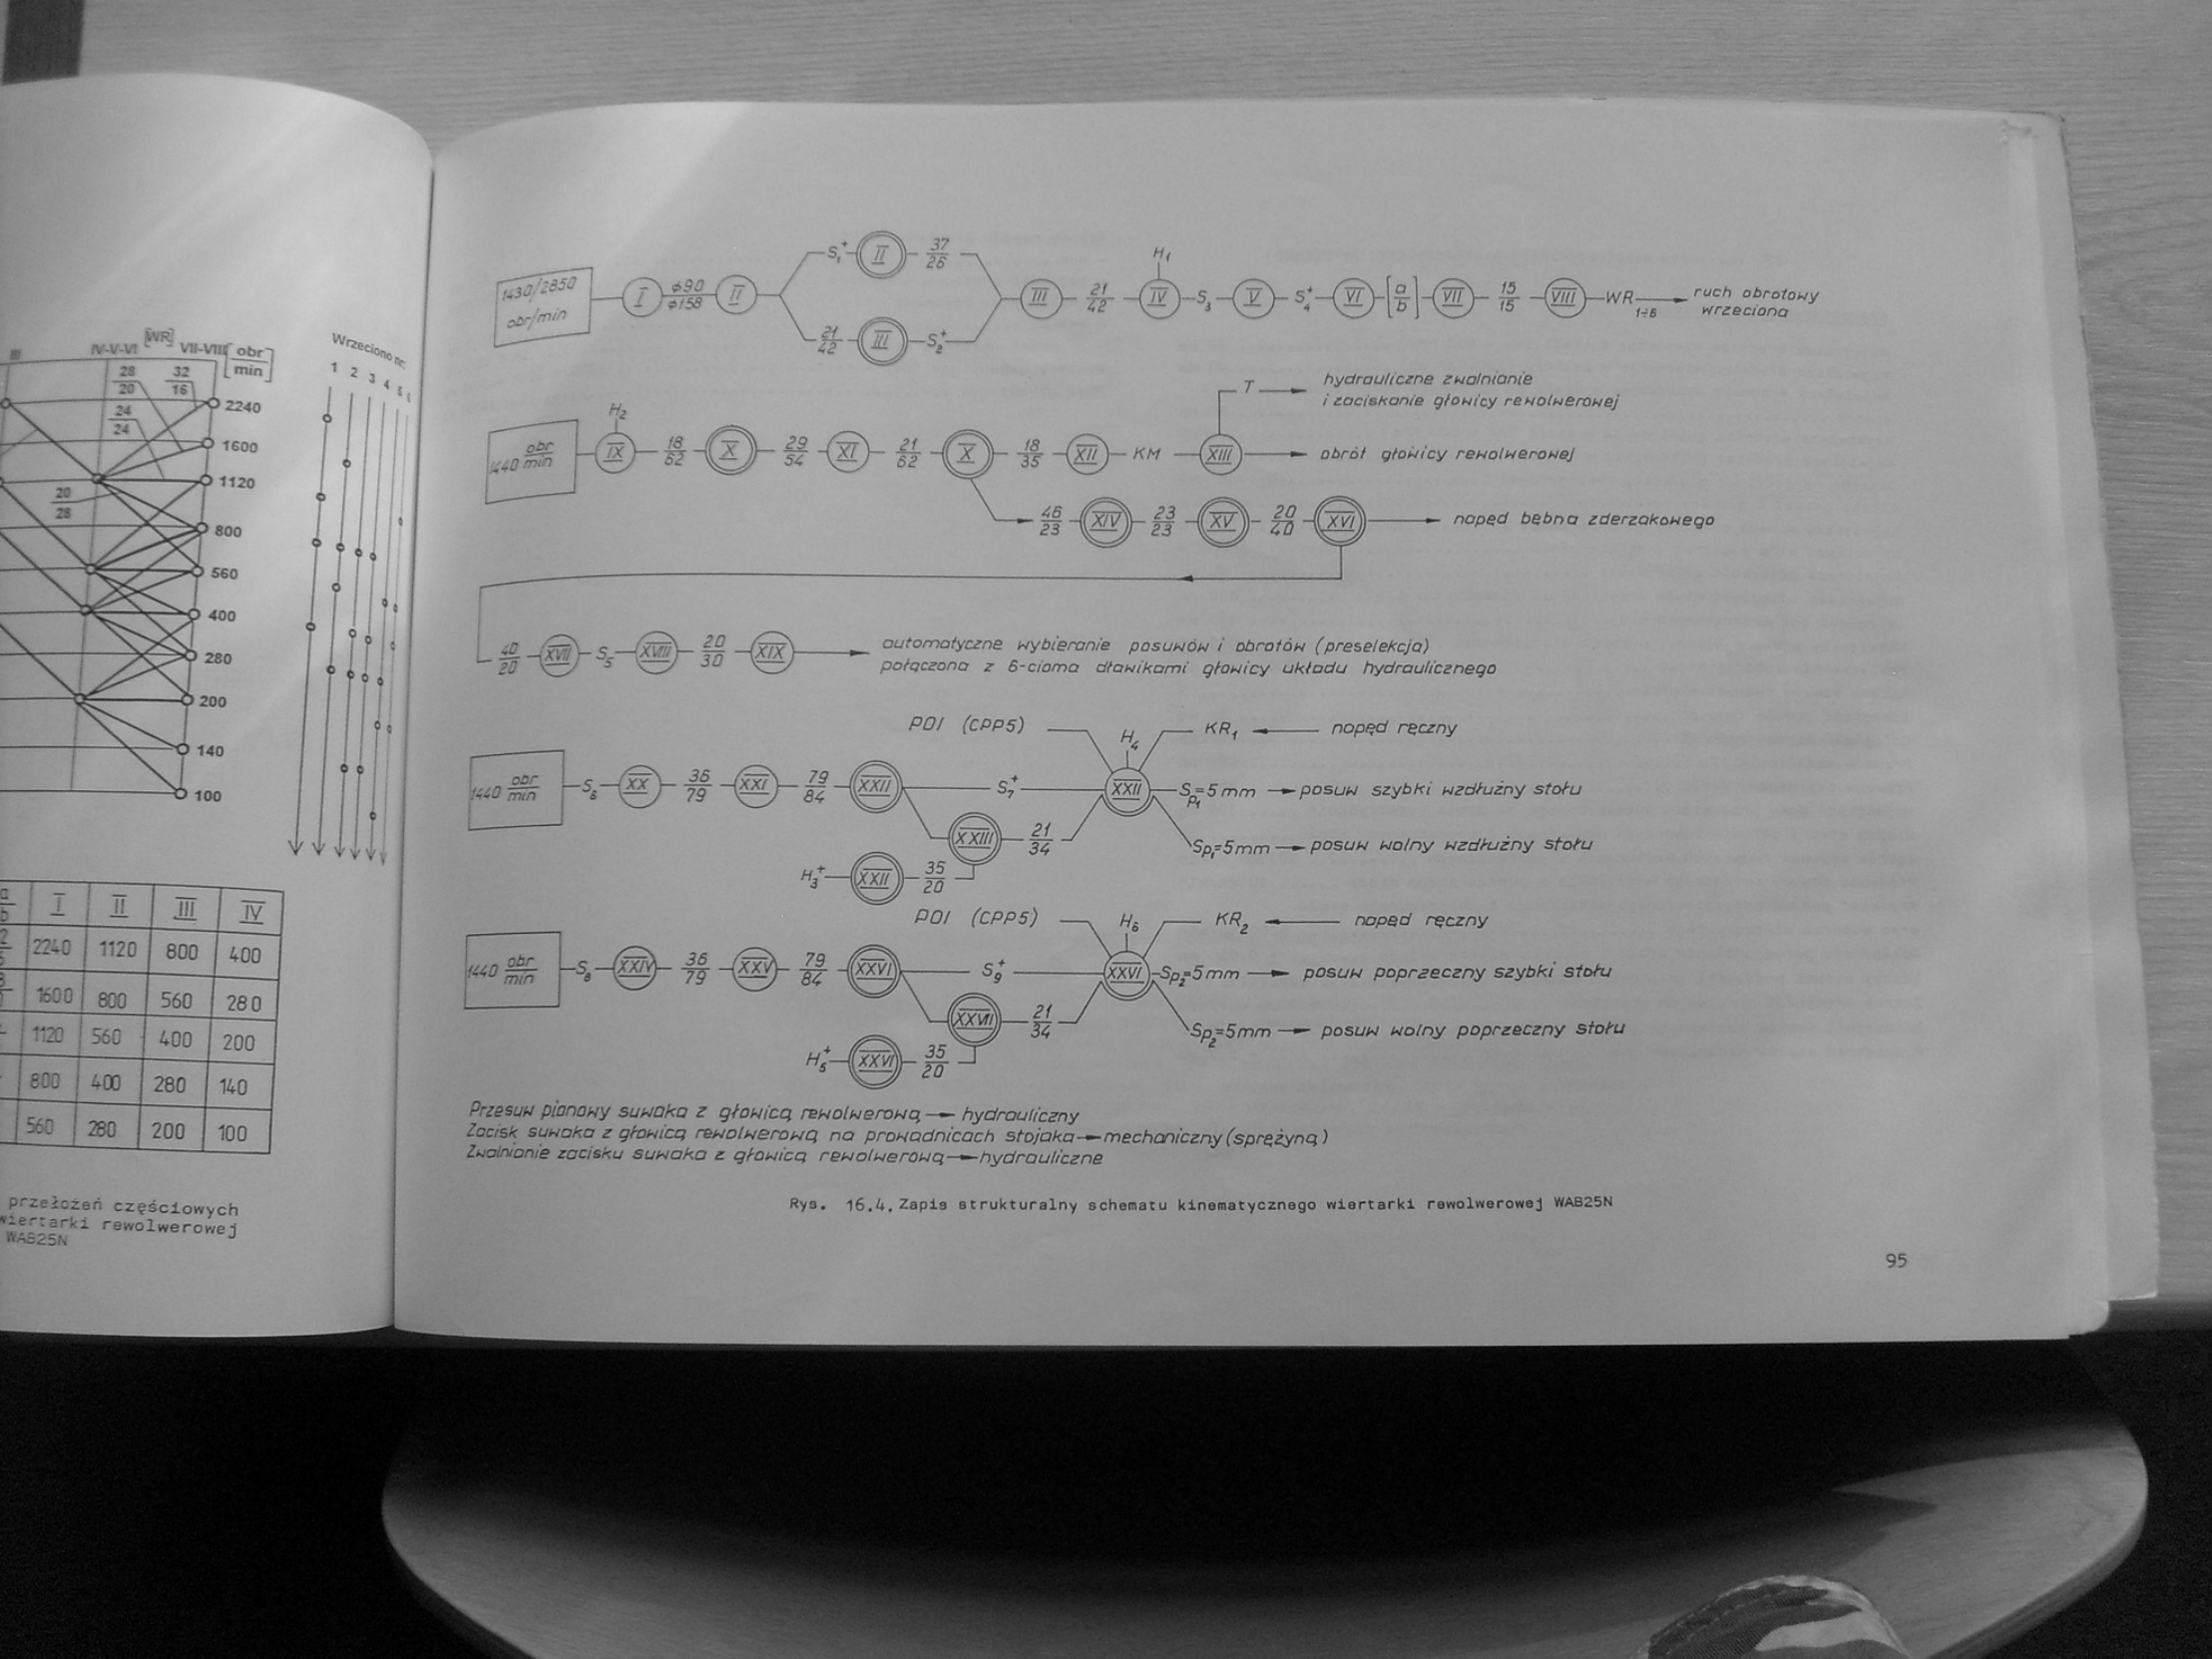 III IV-V-VI [WR] VII-VIII [obr/min]
28/20 32/16
24/24
20/28
2240
1600
1120
800
560
400
280
200
140
100
Wrzeciono nr:
1 2 3 4 5 6
a/b I II III IV
2240 1120 800 400
1600 800 560 280
1120 560 400 200
800 400 280 140
560 280 200 100
przełożeń częściowych
wiertarki rewolwerowej
WAB25N
1430/2850 obr/min I ø90/ø158 II
S₁⁺ II 37/26
21/42 III S₂⁺
III 21/42 H₁ IV S₃ V S₄⁺ VI [a/b] VII 15/15 VIII WR 1÷6 ruch obrotowy
wrzeciona
T hydrauliczne zwalnianie
i zaciskanie głowicy rewolwerowej
1440 obr/min H₂ IX 18/62 X 29/54 XI 21/62 X 18/35 XII KM XIII obrót głowicy rewolwerowej
46/23 XIV 23/23 XV 20/40 XVI napęd bębna zderzakowego
40/20 XVII S₅ XVIII 20/30 XIX automatyczne wybieranie posuwów i obrotów (preselekcja)
połączona z 6-cioma dławikami głowicy układu hydraulicznego
POI (CPP5) H₄ KR₁ napęd ręczny
1440 obr/min S₆ XX 36/79 XXI 79/84 XXII S₇⁺ XXII Sp₁=5mm posuw szybki wzdłużny stołu
XXIII 21/34 Sp₁=5mm posuw wolny wzdłużny stołu
H₃⁺ XXII 35/20
POI (CPP5) H₆ KR₂ napęd ręczny
1440 obr/min S₈ XXIV 36/79 XXV 79/84 XXVI S₉⁺ XXVI Sp₂=5mm posuw poprzeczny szybki stołu
XXVII 21/34 Sp₂=5mm posuw wolny poprzeczny stołu
H₅⁺ XXVI 35/20
Przesuw pionowy suwaka z głowicą rewolwerową → hydrauliczny
Zacisk suwaka z głowicą rewolwerową na prowadnicach stojaka → mechaniczny (sprężyną)
Zwalnianie zacisku suwaka z głowicą rewolwerową → hydrauliczne
Rys. 16.4. Zapis strukturalny schematu kinematycznego wiertarki rewolwerowej WAB25N
95